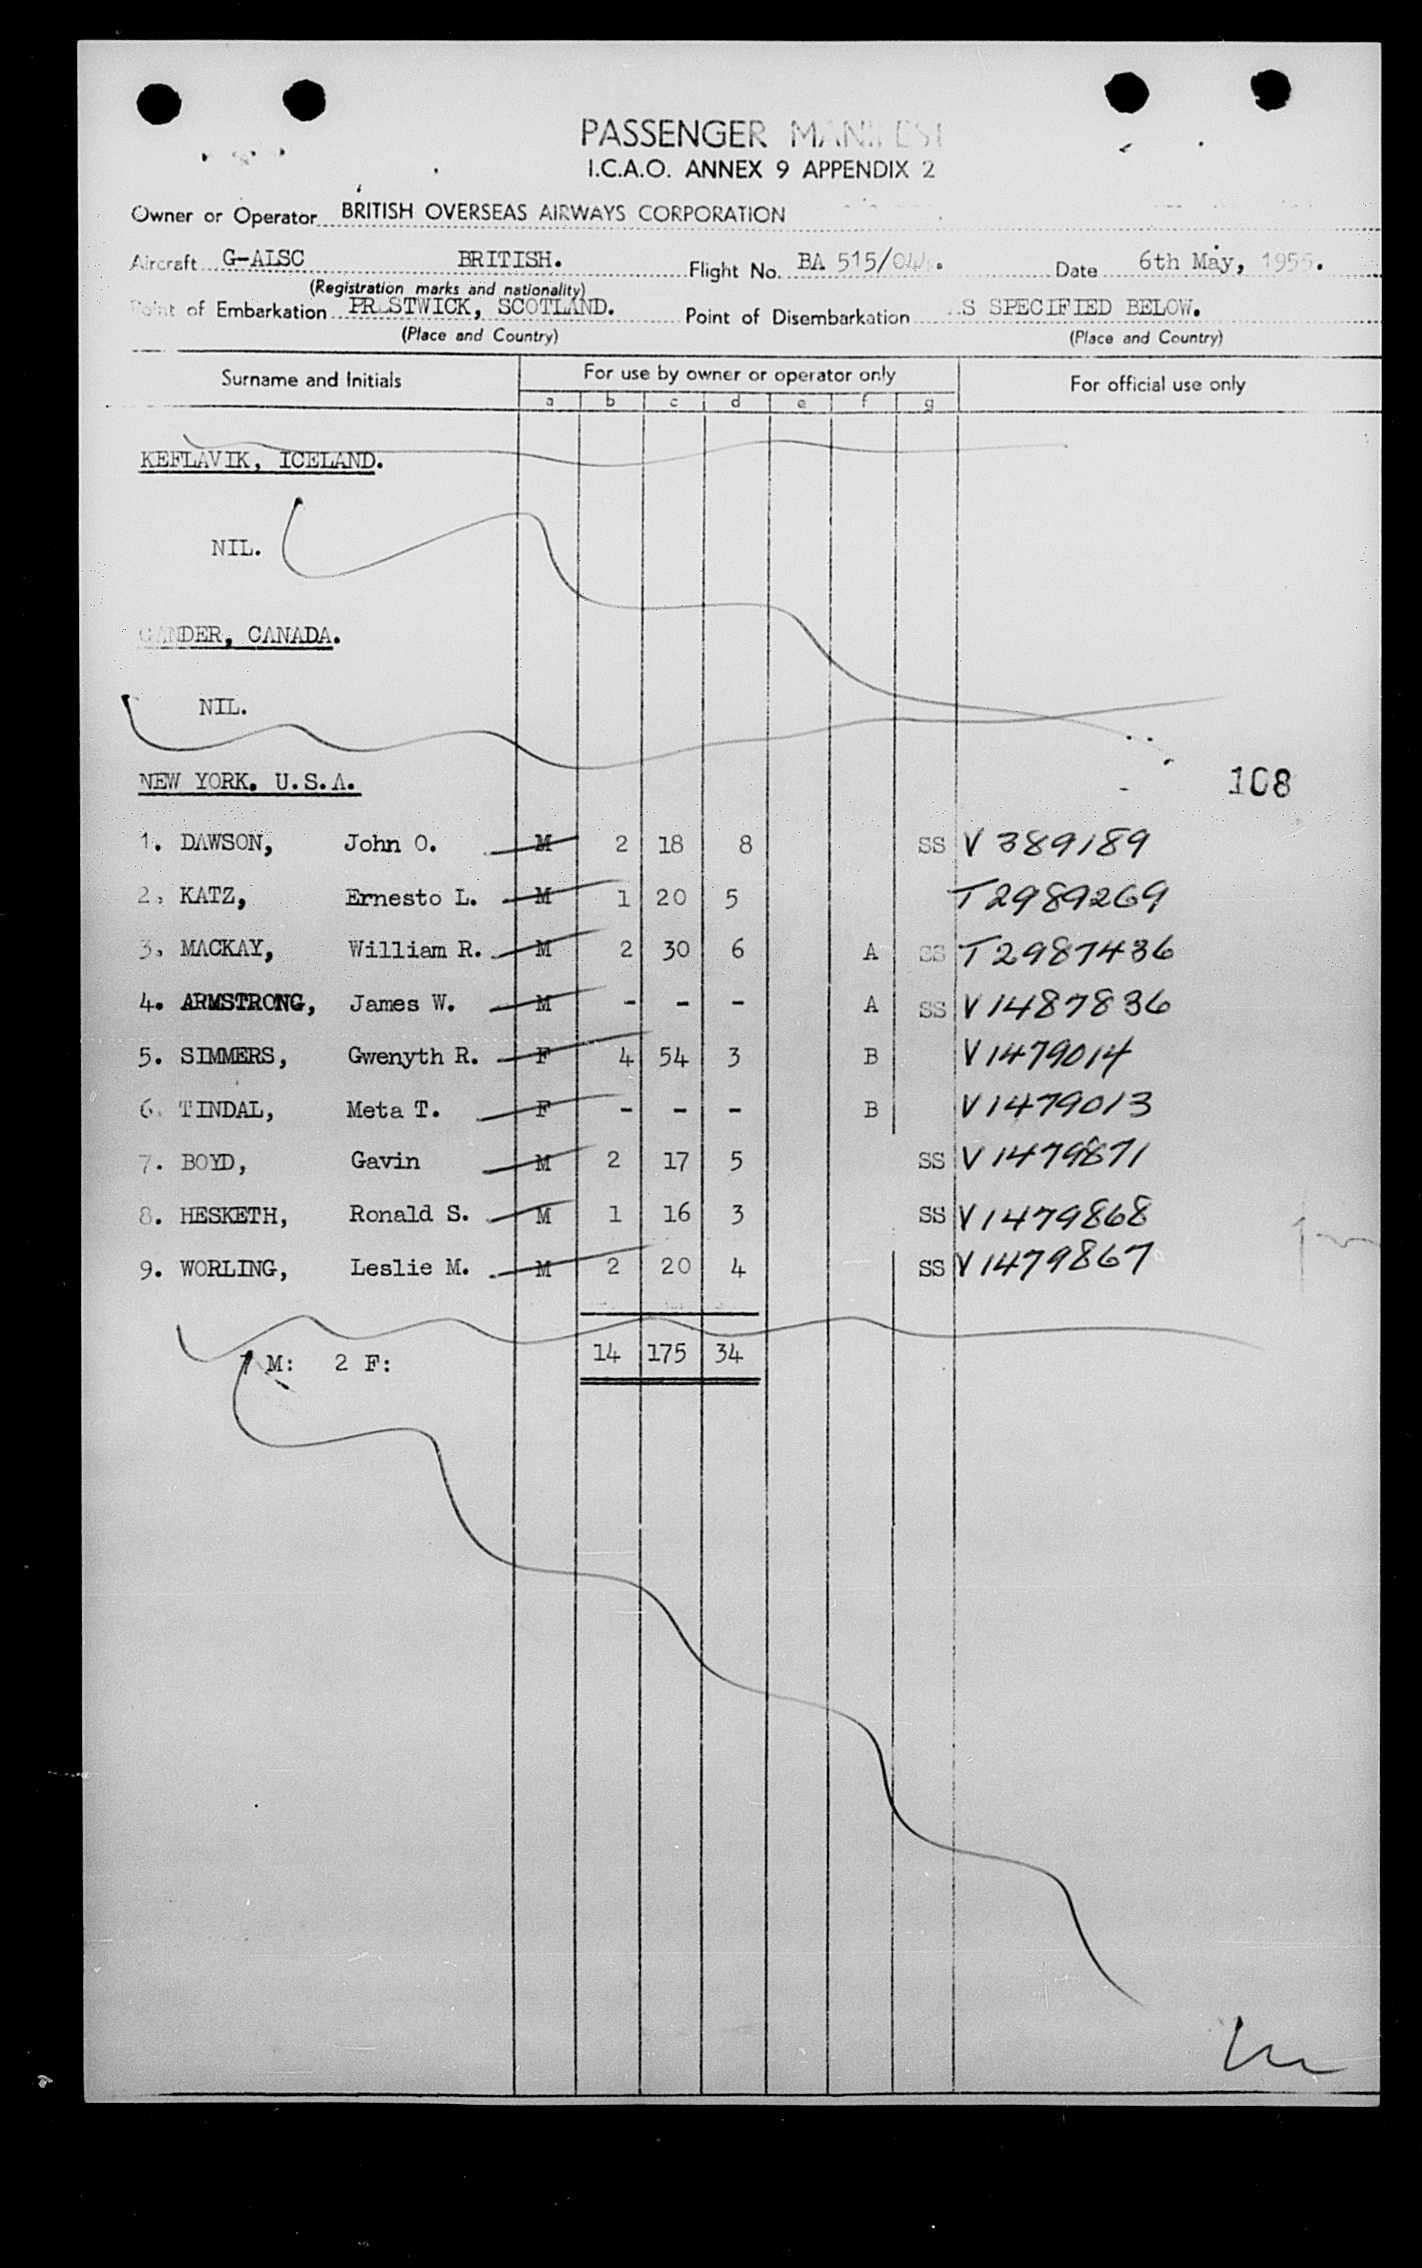 PASSENGER MANIFEST
I.C.A.O. ANNEX 9 APPENDIX 2
Owner or Operator BRITISH OVERSEAS AIRWAYS CORPORATION
Aircraft G-ALSC BRITISH. Flight No. BA 515/ Date 6th May, 1955.
(Registration marks and nationality)
Point of Embarkation PRESTWICK, SCOTLAND. Point of Disembarkation S SPECIFIED BELOW.
(Place and Country) (Place and Country)
Surname and Initials For use by owner or operator only For official use only
a b c d e f g
KEFLAVIK, ICELAND.
NIL.
GANDER, CANADA.
NIL.
NEW YORK. U.S.A.
108
1. DAWSON, John O. M 2 18 8 SS V 389189
2. KATZ, Ernesto L. M 1 20 5 T2989269
3. MACKAY, William R. M 2 30 6 A SS T2987436
4. ARMSTRONG, James W. M - - - A SS V1487836
5. SIMMERS, Gwenyth R. F 4 54 3 B V1479014
6. TINDAL, Meta T. F - - - B V1479013
7. BOYD, Gavin M 2 17 5 SS V1479871
8. HESKETH, Ronald S. M 1 16 3 SS V1479868
9. WORLING, Leslie M. M 2 20 4 SS V1479867
7 M: 2 F: 14 175 34